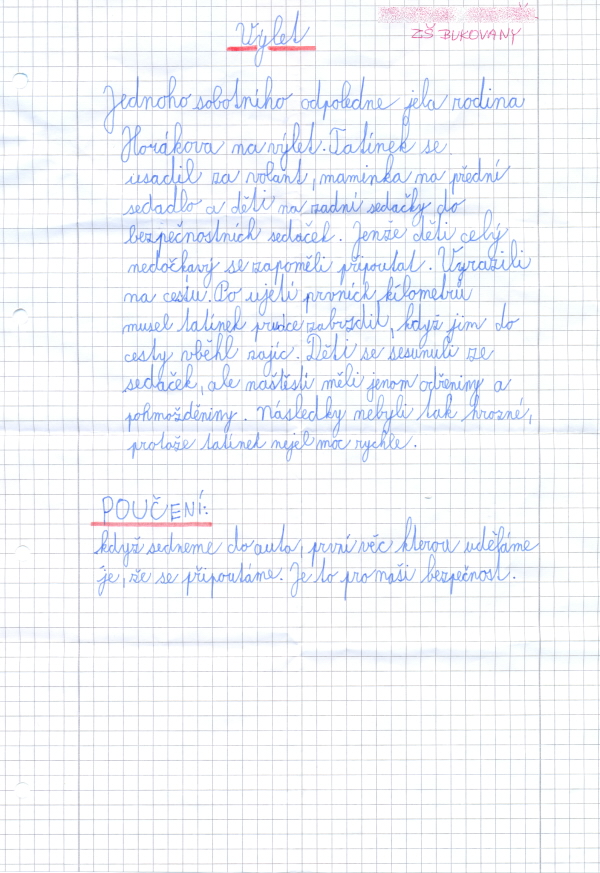 Výlet
ZŠ BUKOVANY
Jednoho sobotního odpoledne jela rodina
Horákova na výlet. Tatínek se
usadil za volant, maminka na přední
sedadlo a děti na zadní sedačky do
bezpečnostních sedaček. Jenže děti celý
nedočkavý se zapoměli připoutat. Vyrazili
na cestu. Po ujetí prvních kilometrů
musel tatínek prudce zabrzdit, když jim do
cesty vběhl zajíc. Děti se sesunuli ze
sedaček, ale naštěstí měli jenom odřeniny a
pohmožděniny. Následky nebyli tak hrozné,
protože tatínek nejel moc rychle.
POUČENÍ:
když sedneme do auta, první věc kterou uděláme
je, že se připoutáme. Je to pro naši bezpečnost.